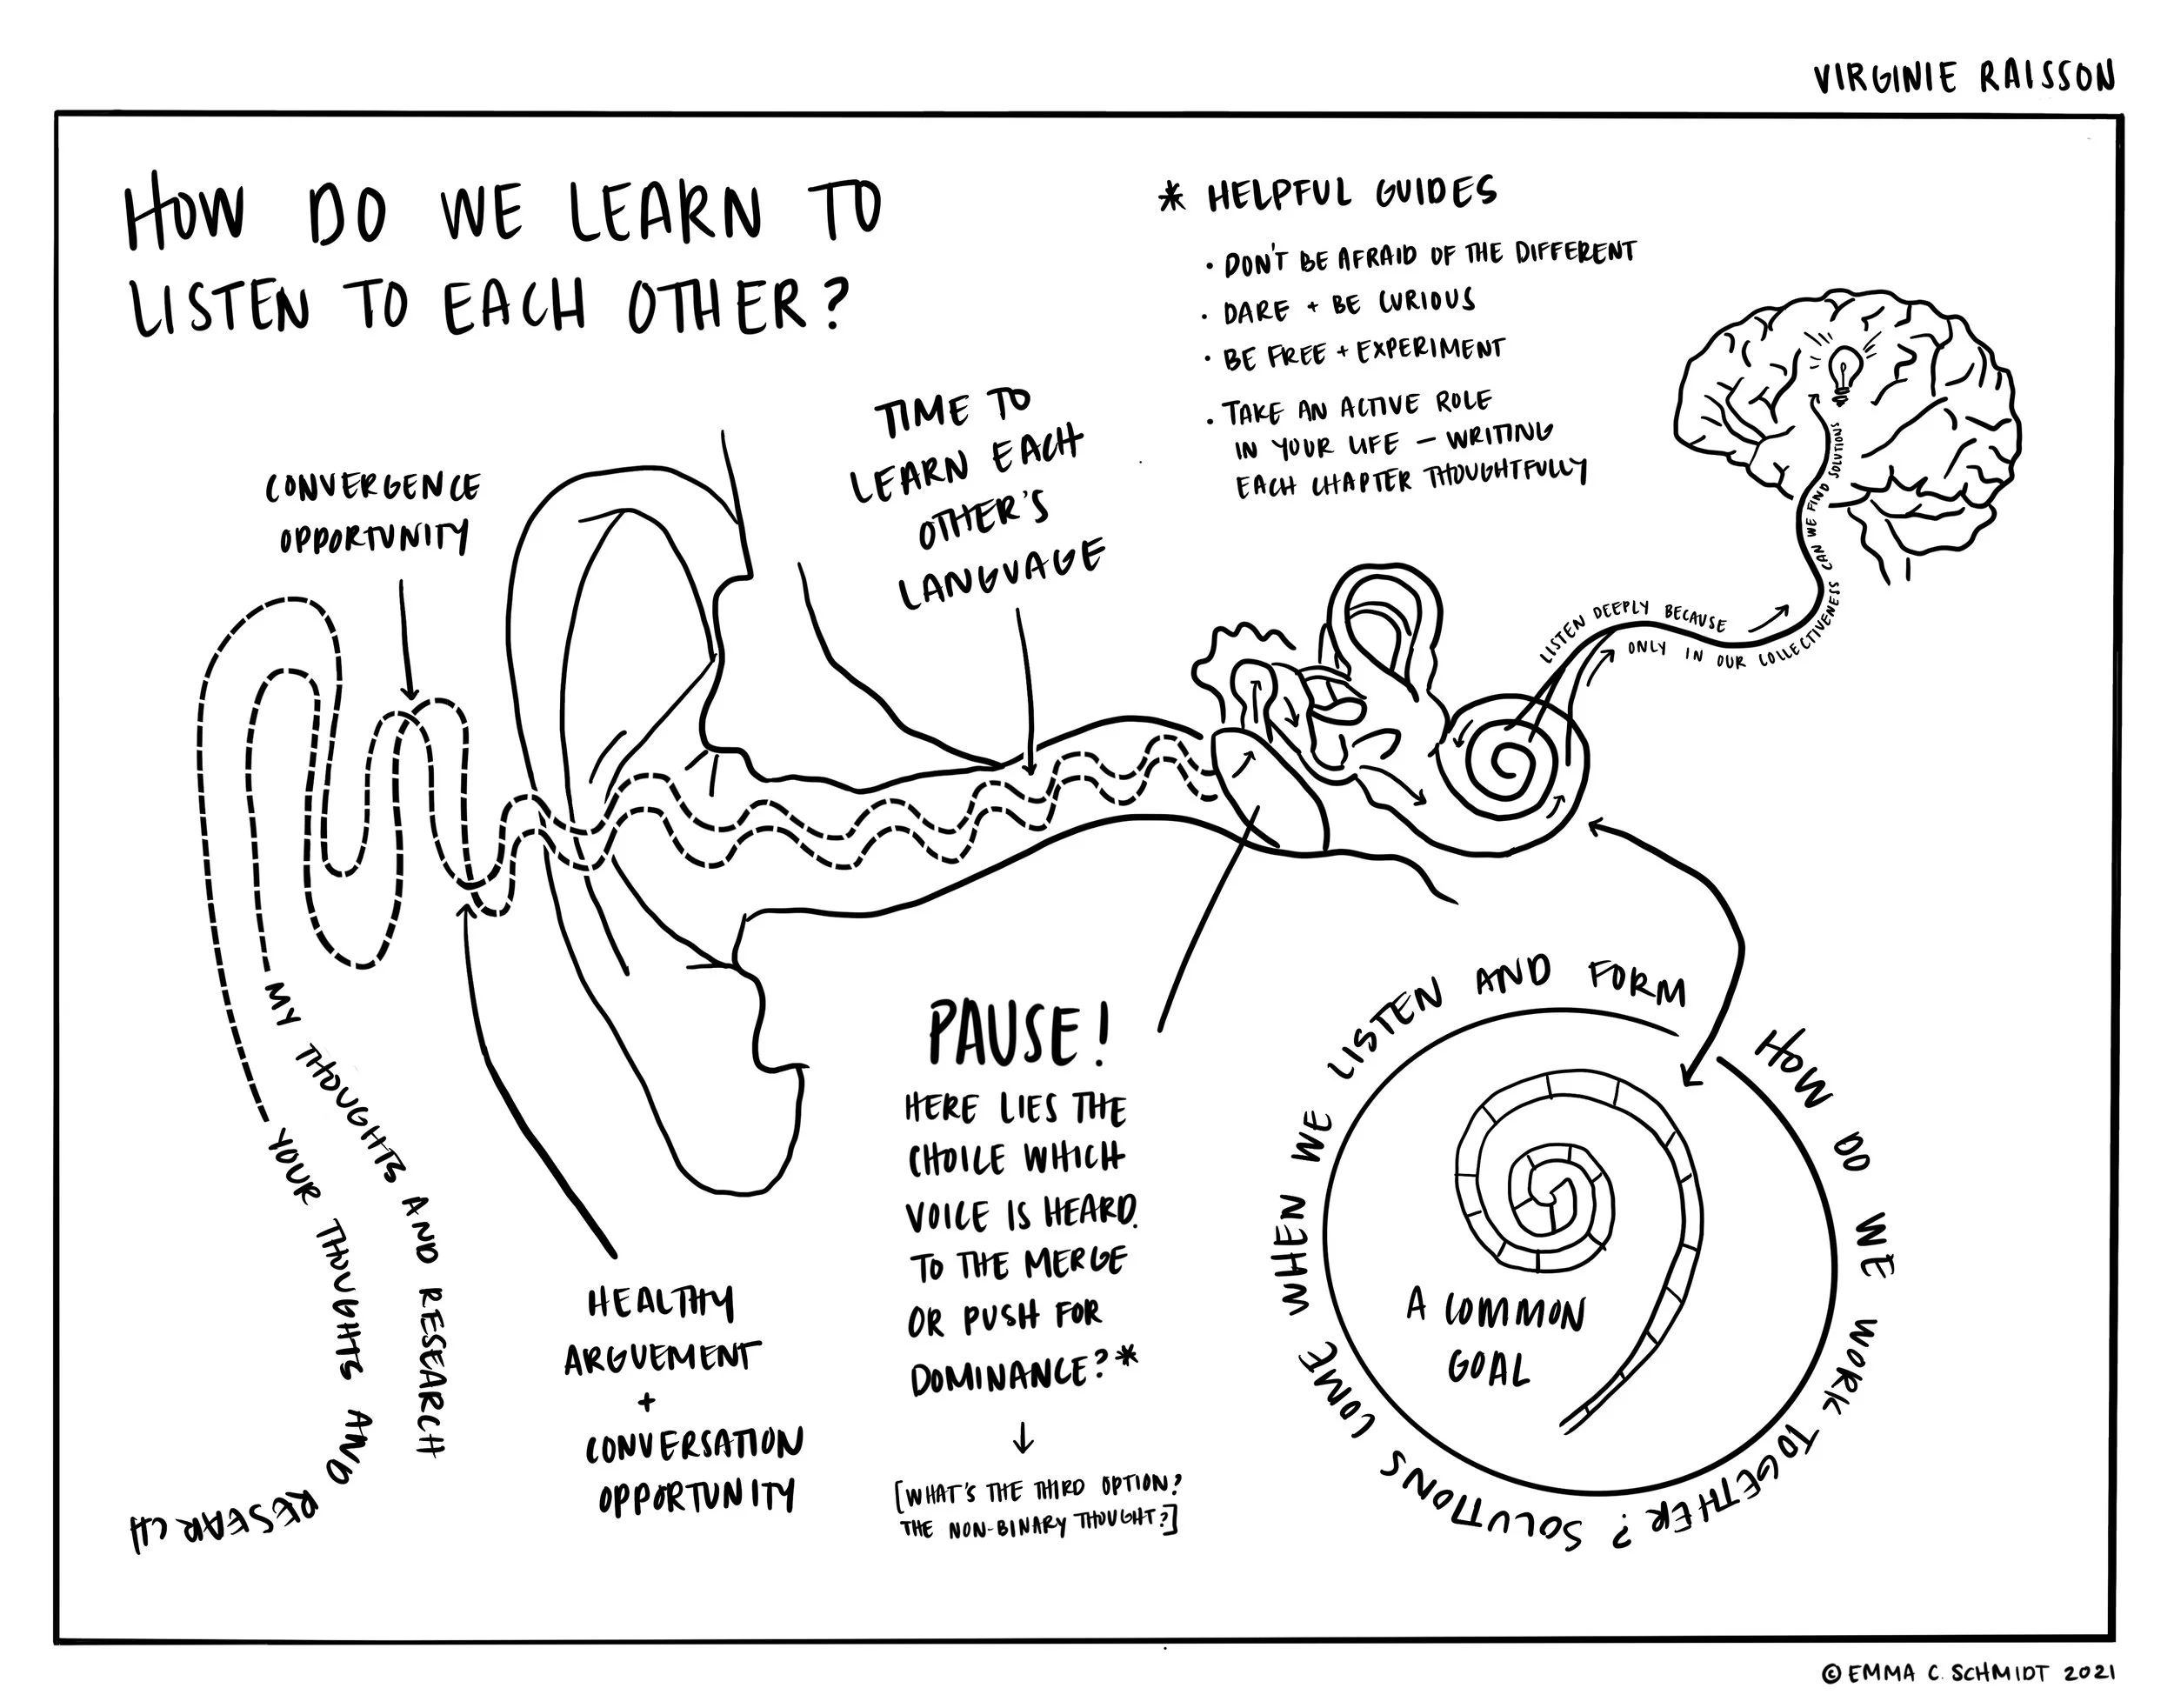 VIRGINIE RAISSON
HOW DO WE LEARN TO
LISTEN TO EACH OTHER?
* HELPFUL GUIDES
· DON'T BE AFRAID OF THE DIFFERENT
· DARE + BE CURIOUS
· BE FREE + EXPERIMENT
· TAKE AN ACTIVE ROLE
IN YOUR LIFE – WRITING
EACH CHAPTER THOUGHTFULLY
CONVERGENCE
OPPORTUNITY
TIME TO
LEARN EACH
OTHER'S
LANGUAGE
LISTEN DEEPLY BECAUSE
ONLY IN OUR COLLECTIVENESS CAN WE FIND SOLUTIONS
MY THOUGHTS AND RESEARCH
YOUR THOUGHTS AND RESEARCH
HEALTHY
ARGUEMENT
+
CONVERSATION
OPPORTUNITY
PAUSE!
HERE LIES THE
CHOICE WHICH
VOICE IS HEARD.
TO THE MERGE
OR PUSH FOR
DOMINANCE?*
[WHAT'S THE THIRD OPTION?
THE NON-BINARY THOUGHT?]
HOW DO WE WORK TOGETHER? SOLUTIONS COME WHEN WE LISTEN AND FORM
A COMMON
GOAL
© EMMA C. SCHMIDT 2021